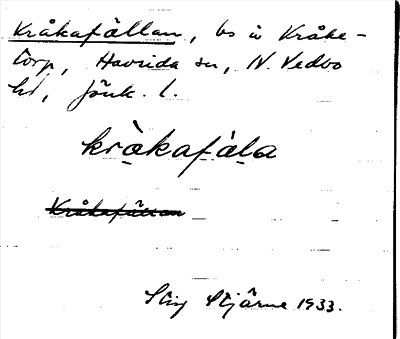 Kråkafällan, bs å Kråke-
torp, Havsida sn, N. Vedbo
hd, Jönk. l.
kràkafàla
Kråkafällan
Stig Stjärne 1933.